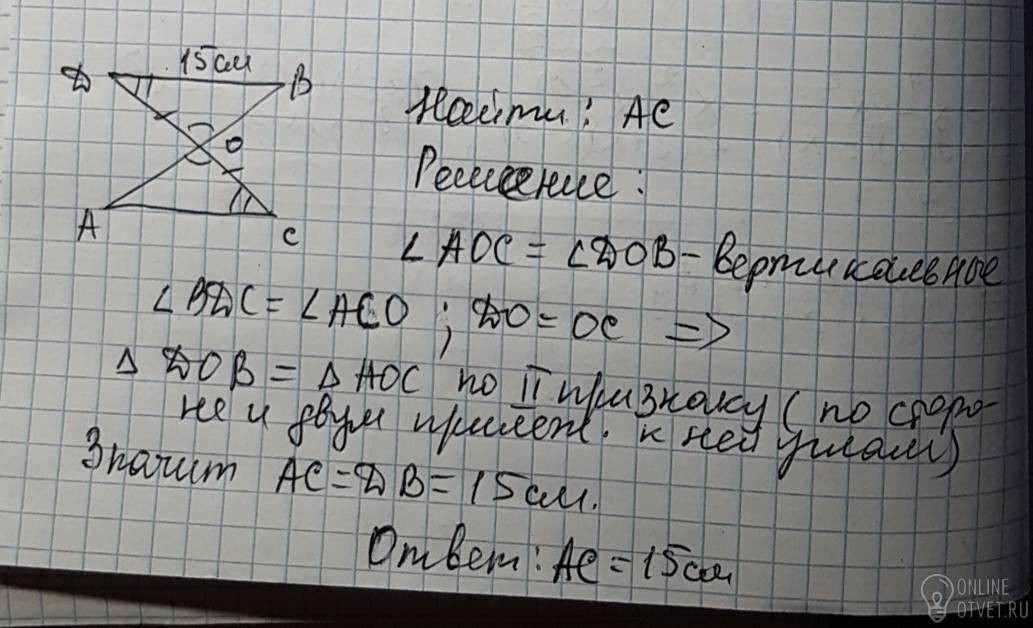 15см
D
B
O
A
C
Найти: AC
Решение:
∠AOC = ∠DOB - вертикальные
∠BDC = ∠ACO ; DO = OC =>
Δ DOB = Δ AOC по II признаку (по сторо-
не и двум прилеж. к ней углам)
Значит AC = DB = 15см.
Ответ: AC = 15см
ONLINE
OTVET.RU